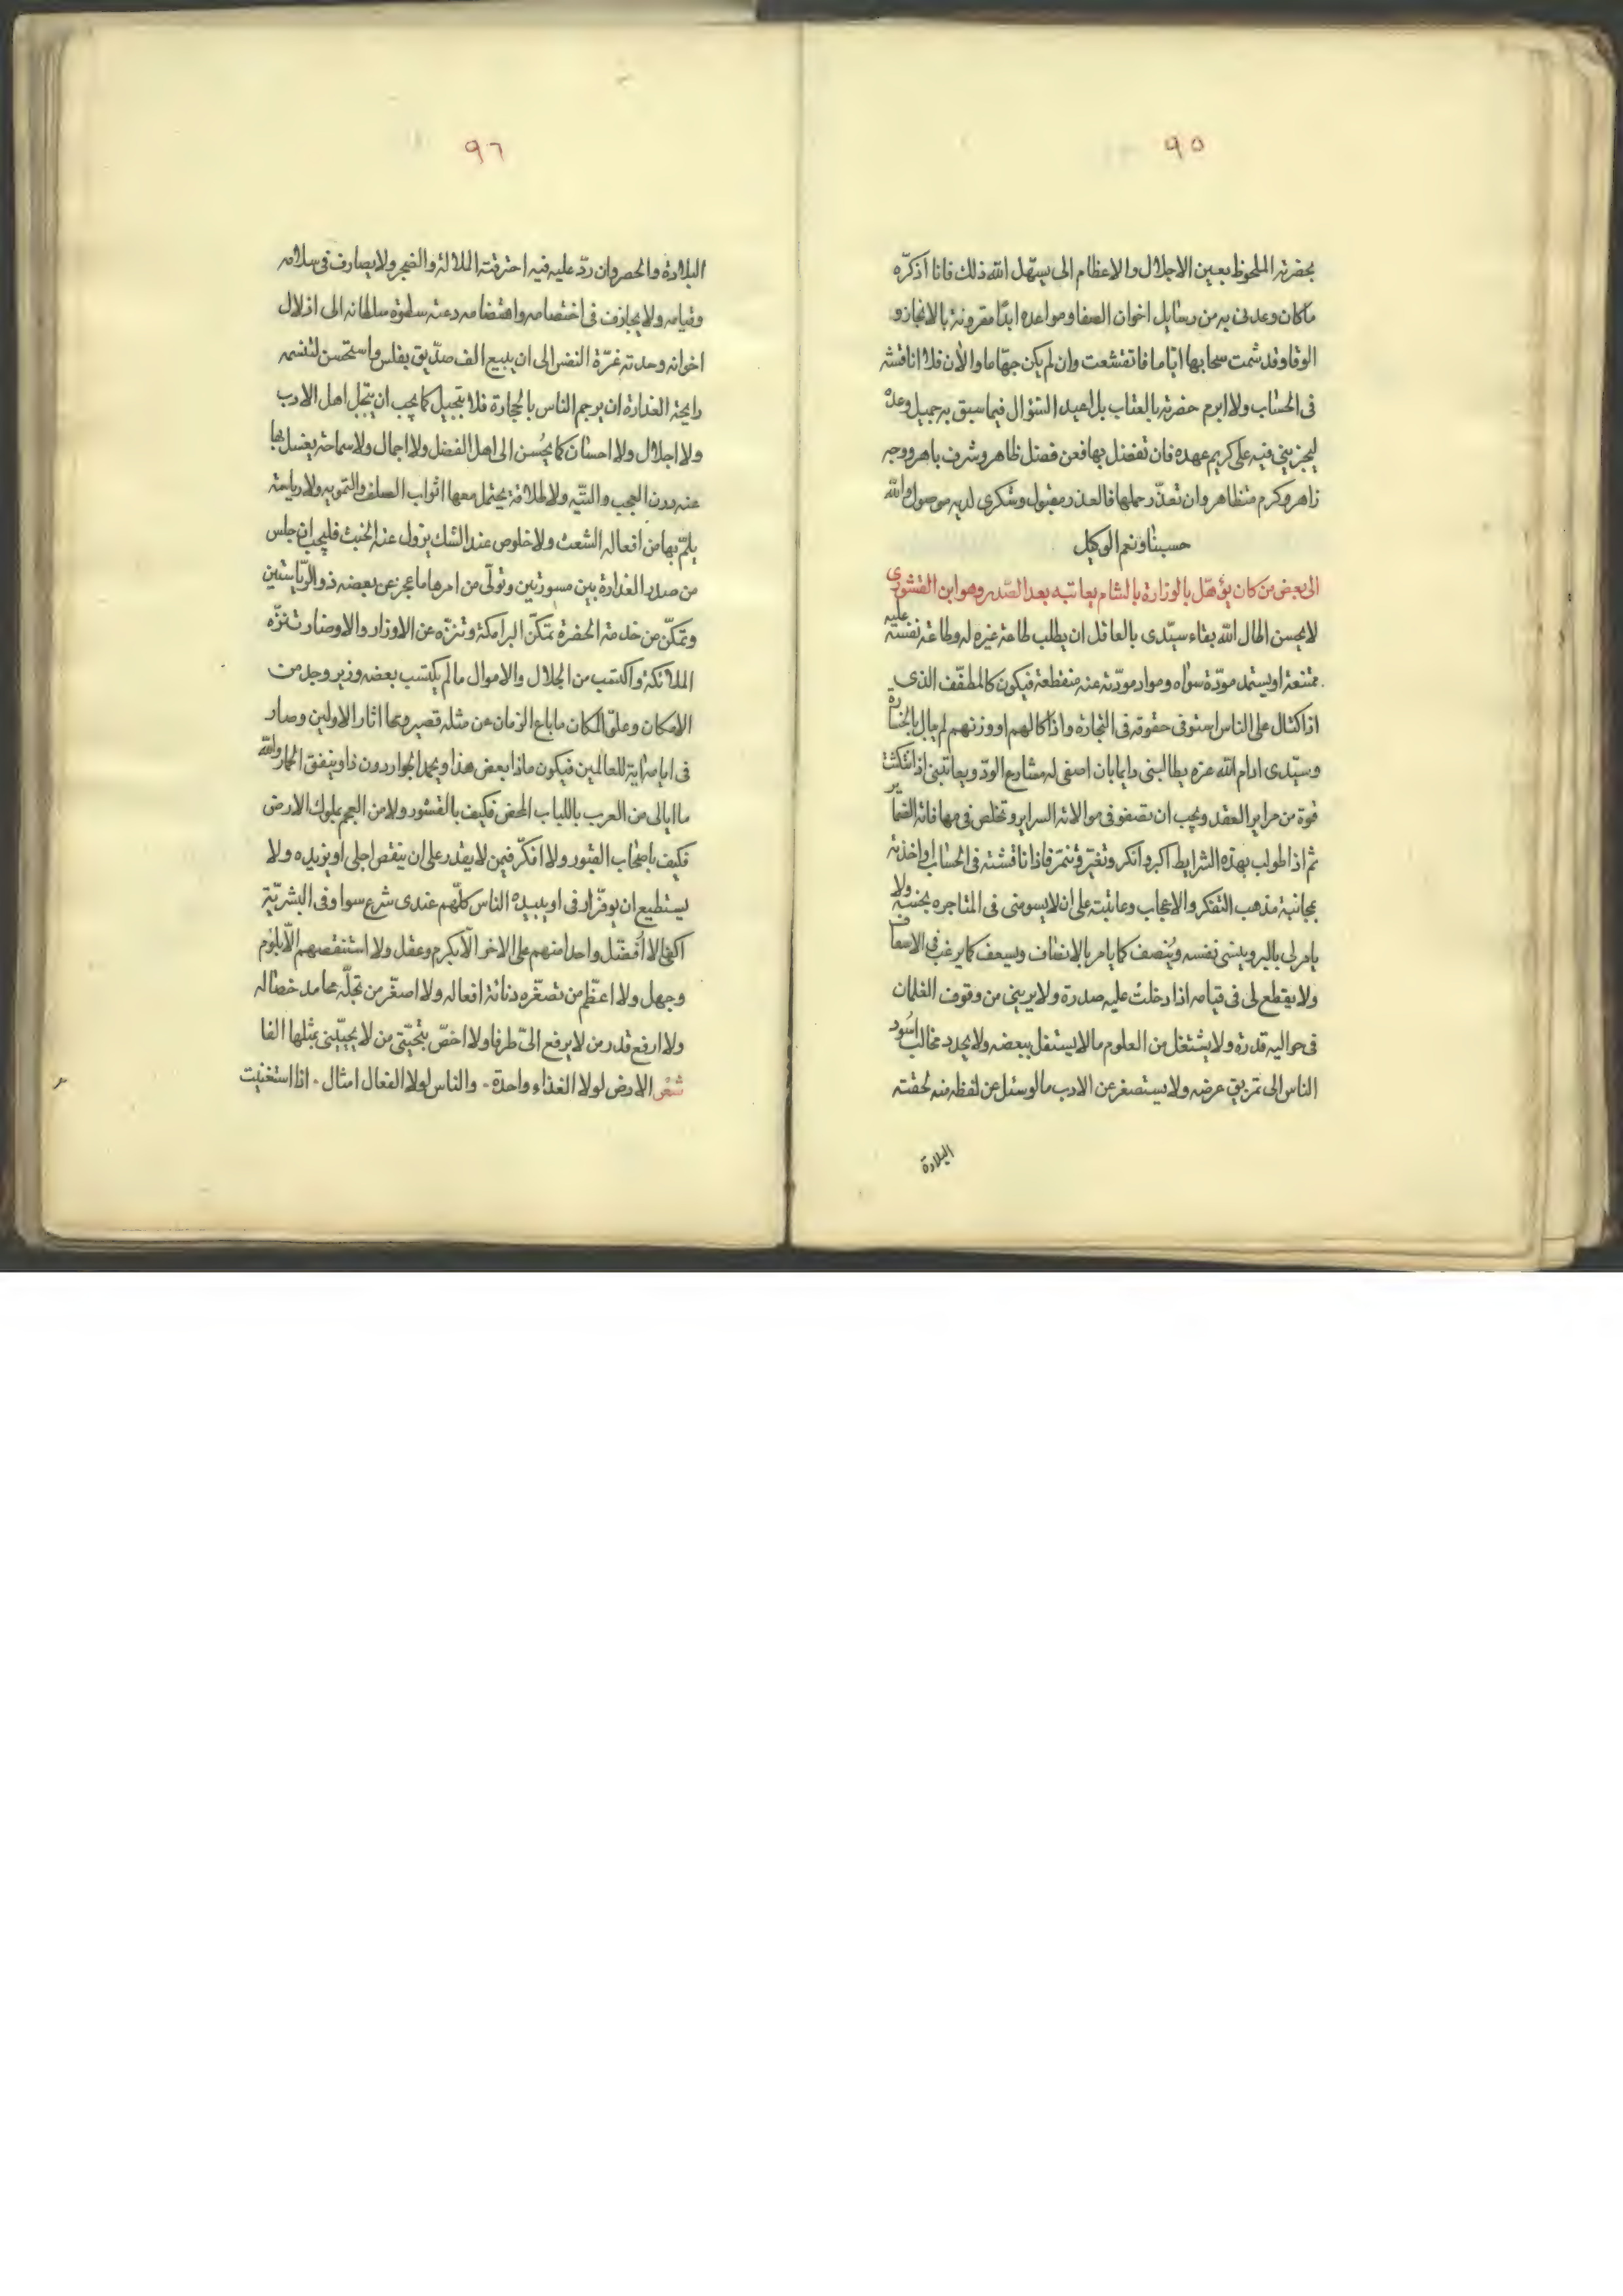 ٩٥
بحضرته الملحوظ بعين الاجلال والاعظام الى يسهّل الله ذلك فانا اذكّره
ماكان وعدنى به من رسايل اخوان الصفا ومواعده ابدًا مقرونة بالانجاز و
الوفا وقد شمت سحابها ايّاما فاتقشعت وان لم يكن جهاما والأن فلا اناقشه
فى الحساب ولا ابرم حضرته بالعتاب بل اعيد السّؤال فيما سبق به جميل وعده
ليجزينى فيه على كريم عهده فان تفضل بها فعن فضل ظاهر وشرف باهر ووجه
زاهر وكرم متظاهر وان تعذّر حملها فالعذر مقبول وشكرى لديه موصول والله
حسبنا ونعم الوكيل
الى بعض من كان يؤهّل بالوزارة بالشام يعاتبه بعد الصّدر وهو ابن القشورى
لايحسن اطال الله بقاء سيّدى بالعاقل ان يطلب طاعة غيره له وطاعة نفسه عليه
ممتنعة او يستمد مودّة سواه وموارد مودّته عنه منقطعة فيكون كالمطفّف الذى
اذا اكتال على الناس استوفى حقوقه فى التجارة واذا كالهم او وزنهم لم يبال بالخسارة
وسيّدى ادام الله عزه يطالبنى دايما بان اصفى له مشارع الودّ ويعاتبنى اذا انتكثت
قوة من مراير العقد ويحب ان تصفو فى موالاته السراير وتخلص فى مصافاته الضماير
ثم اذا طولب بهذه الشرايط اكبر وانكر وتغيّر وتنمّر فاذا ناقشته فى الحساب واخذته
بمجانبة مذهب التفكر والاعجاب وعاتبته على ان لايسومنى فى المتاجره بخسه ولا
يامر لى بالبر وينسى نفسه وينصف كما يامر بالانصاف ويسعف كما يرغب فى الاسعاف
ولا يقطع لى فى قيامه اذا دخلت عليه صدرة ولا يرينى من وقوف الغلمان
فى حواليه قدرة ولا يشتغل من العلوم مالا يستقل ببعضه ولا يحدد مخالب اسود
الناس الى تمزيق عرضه ولا يستصغر عن الادب مالو سئل عن لفظه منه لحقته
البلادة
٩٦
البلادة والحصر وان ردّ عليه فيه احترقته الملالة والضجر ولا يصارف فى سلامه
وقيامه ولا يجازف فى اختصامه واهتضامه دعته سطوة سلطانه الى اذلال
اخوانه وحدته غرّة النفس الى ان يبيع الف صدّيق بفلس واستحسن لتنسمه
رايحة الغدارة ان يرجم الناس بالحجارة فلا تبجيل كما يجب ان يبجّل اهل الادب
ولا اجلال ولا احسان كما يُحسن الى اهل الفضل ولا اجمال ولا سماحة يغسل بها
عنه درن العجب والتيّه ولا طلاقة يحتمل معها اثواب الصلف والتمويه ولا رياسة
يلمّ بها من افعاله الشعث ولا خلوص عند الشك يزول عنه الخبث فليجب ان جلس
من صدر الغدارة بين مسورتين وتولّى من امرها ما عجز عن بعضه ذو الرّياستين
وتمكّن من خدمة الحضرة تمكّن البرامكة وتنزّه عن الاوزار والاوضار تنزّه
الملائكة واكتسب من الجلال والاموال مالم يكتسب بعضه وزير وجد من
الامكان وعلوّ المكان ما باع الزمان عن مثله قصير ومحا اثار الاولين وصار
فى ايامه اية للعالمين فيكون ماذا بعض هذا ويحمد الجواد دون ذا وينفق الحمار والله
ما ابالى من العرب باللباب المحض فكيف بالقشور ولا من العجم بملوك الارض
فكيف باصحاب القبور ولا افكّر فيمن لايقدر على ان ينقص اجلى او يزيده ولا
يستطيع ان يوفّر ارفى او يبيده الناس كلّهم عندى شرع سوا وفى البشريّة
اكفى لا اُفضّل واحدا منهم على الاخر الّا بكرم وعقل ولا استنقصهم الّا بلوم
وجهل ولا اعظّم من تصغّره دنائة افعاله ولا اصغّر من تجلّه محامد خصاله
ولا ارفع قدر من لايرفع الىّ طرفا ولا اخصّ بتحيّتى من لا يحيّينى بمثلها الفا
شعر الارض لولا الغذاء واحدة . والناس لولا الفعال امثال . اذا استغنيت